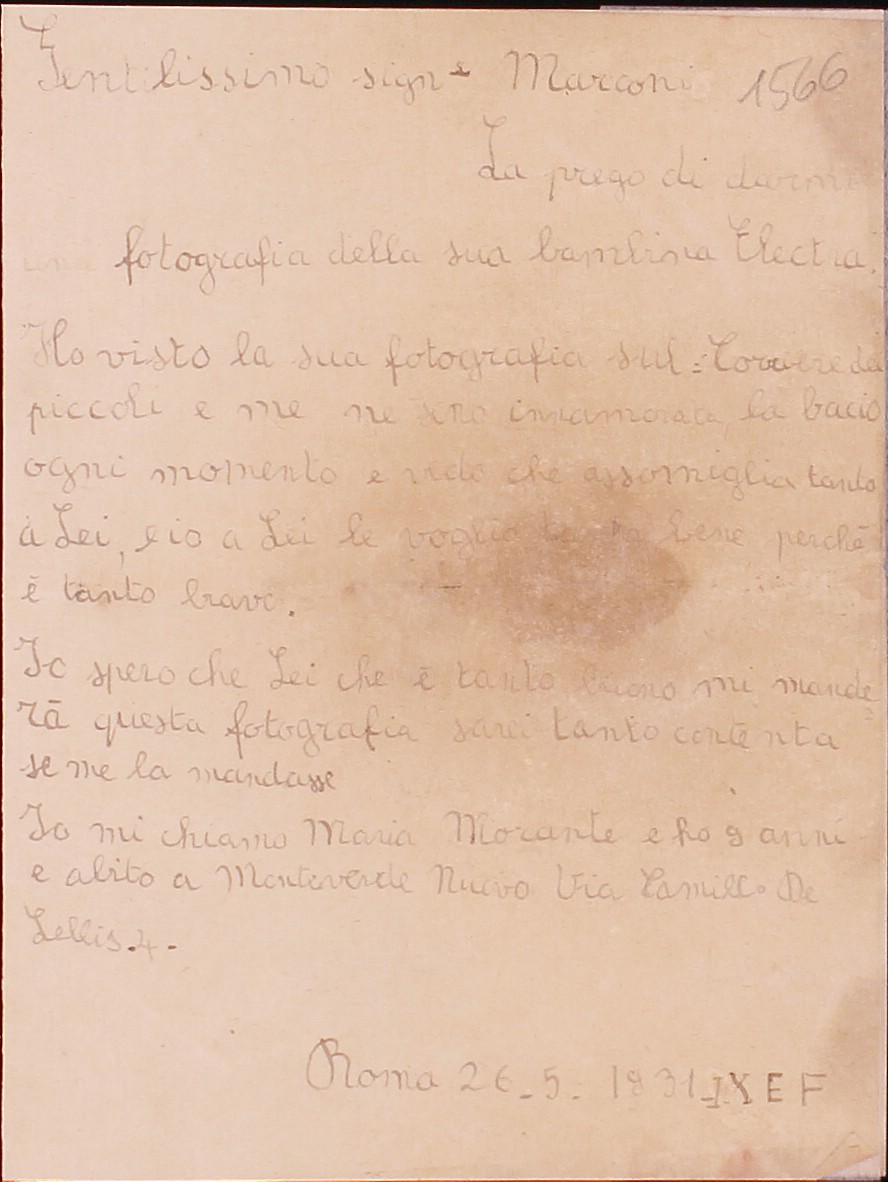 Gentilissimo sign.e Marconi 1566
La prego di darmi
una fotografia della sua bambina Electra.
Ho visto la sua fotografia sul = Corriere dei
piccoli e me ne sono innamorata, la bacio
ogni momento e vedo che assomiglia tanto
a Lei, e io a Lei le voglio tanto bene perchē
ē tanto bravo.
Io spero che Lei che ē tanto buono mi mande=
rā questa fotografia sarei tanto contenta
se me la mandasse
Io mi chiamo Maria Morante e ho 9 anni
e abito a Monteverde Nuovo Via Camillo De
Lellis. 4.
Roma 26-5-1931-IX E F